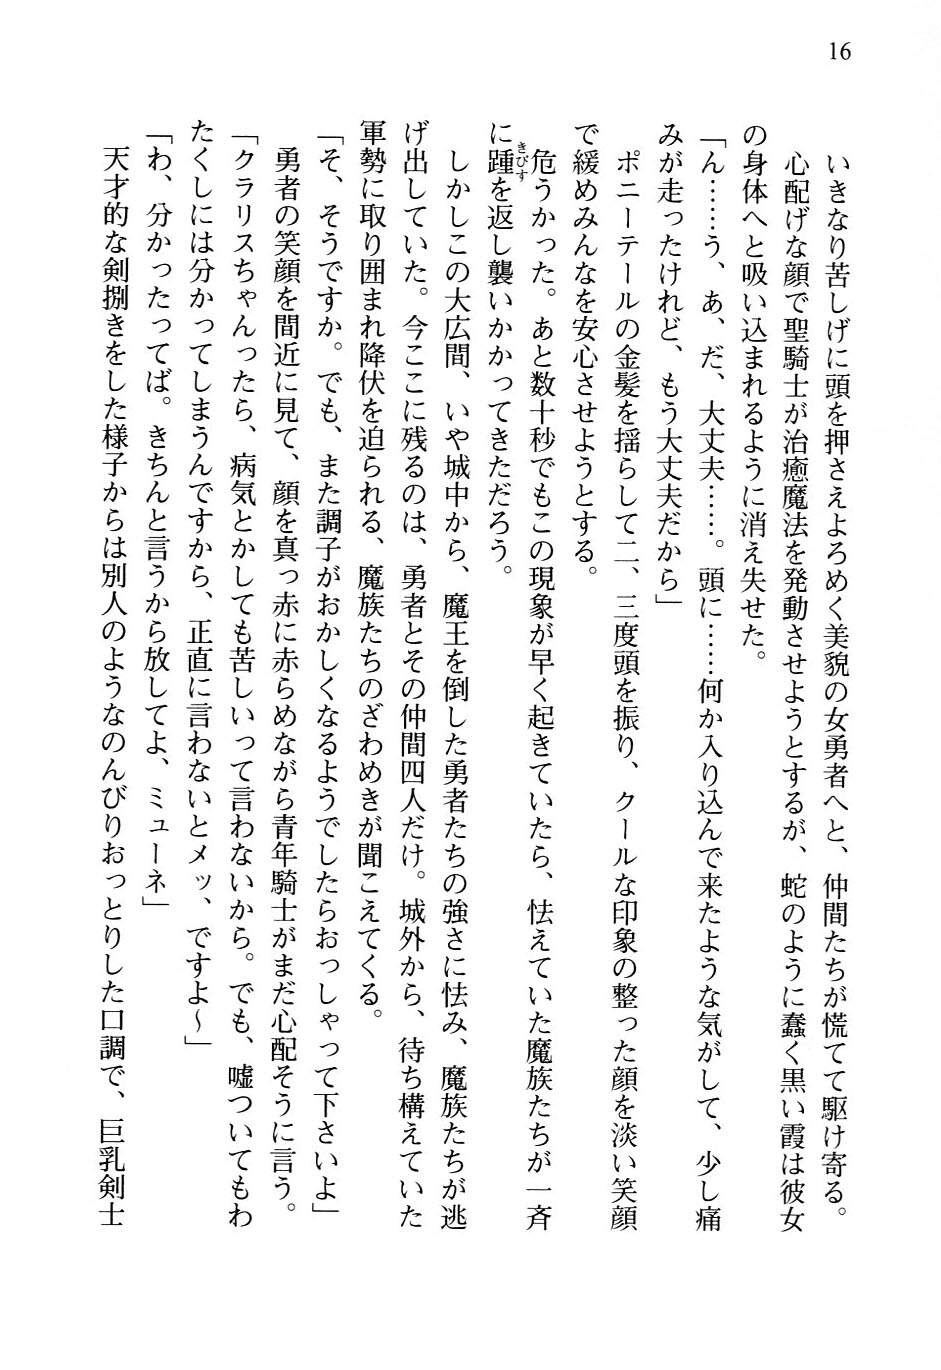 16
　いきなり苦しげに頭を押さえよろめく美貌の女勇者へと、仲間たちが慌てて駆け寄る。
　心配げな顔で聖騎士が治癒魔法を発動させようとするが、蛇のように蠢く黒い霞は彼女
の身体へと吸い込まれるように消え失せた。
「ん……う、あ、だ、大丈夫……。頭に……何か入り込んで来たような気がして、少し痛
みが走ったけれど、もう大丈夫だから」
　ポニーテールの金髪を揺らして二、三度頭を振り、クールな印象の整った顔を淡い笑顔
で緩めみんなを安心させようとする。
　危うかった。あと数十秒でもこの現象が早く起きていたら、怯えていた魔族たちが一斉
に踵きびすを返し襲いかかってきただろう。
　しかしこの大広間、いや城中から、魔王を倒した勇者たちの強さに怯み、魔族たちが逃
げ出していた。今ここに残るのは、勇者とその仲間四人だけ。城外から、待ち構えていた
軍勢に取り囲まれ降伏を迫られる、魔族たちのざわめきが聞こえてくる。
「そ、そうですか。でも、また調子がおかしくなるようでしたらおっしゃって下さいよ」
　勇者の笑顔を間近に見て、顔を真っ赤に赤らめながら青年騎士がまだ心配そうに言う。
「クラリスちゃんったら、病気とかしても苦しいって言わないから。でも、嘘ついてもわ
たくしには分かってしまうんですから、正直に言わないとメッ、ですよ～」
「わ、分かったってば。きちんと言うから放してよ、ミューネ」
　天才的な剣捌きをした様子からは別人のようなのんびりおっとりした口調で、巨乳剣士